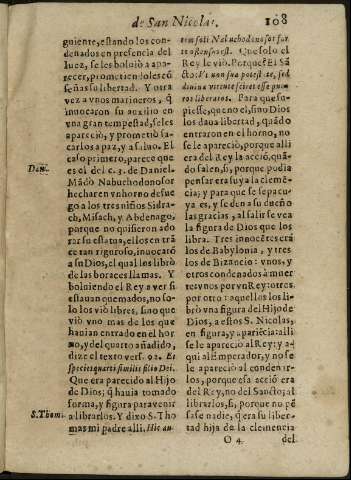 de San Nicolas.
108
guiente, estando los con-
denados en presencia del
Iuez, se les boluiò a apa-
recer, prometiendoles cõ
señas su libertad. Y otra
vez a vnos marineros, q̃
inuocaron su auxilio en
vna gran tempestad, se les
apareciò, y prometiò sa-
carlos a paz, y a saluo. El
caso primero, parece que
es el del c. 3. de Daniel.
Dani.
Mãdò Nabuchodonosor
hechar en vn horno de fue
go a los tres niños Sidra-
ch, Misach, y Abdenago,
porque no quisieron ado
rar su estatua, ellos en trã
ce tan riguroso, inuocarõ
a su Dios, el qual los librò
de las boraces llamas. Y
boluiendo el Rey a ver si
estauan quemados, no so-
lo los viò libres, sino que
viò vno mas de los que
hauian entrado en el hor
no, y del quarto añadido,
dize el texto vers. 92. Et
species quarti similis filio Dei.
Que era parecido al Hijo
de Dios; q̃ hauia tomado
forma, y figura para venir
S. Thom.
a librarlos. Y dixo S. Tho
mas mi padre alli. Hic au-
tem soli Nabuchodonosor fue
re ostensum est. Que solo el
Rey le viò. Porque? El Sã
cto: Vt non sua potestate, sed
diuina virtute sciret esse pue-
ros liberatos. Para que su-
piesse, que no el, sino Dios
los daua libertad, quãdo
entraron en el horno, no
se le apareciò, porque alli
era del Rey la acciò, quã-
do salen, si, porque podia
pensar era suya la clemẽ-
cia; y para que se sepa cu-
ya es, y se den a su dueño
las gracias, al salir se vea
la figura de Dios que los
libra. Tres innocẽtes erã
los de Babylonia, y tres
los de Bizancio: vnos, y
otros condenados à muer
te: vnos por vn Rey: otros
por otro: aquellos los li-
brò vna figura del Hijo de
Dios, a estos S. Nicolas,
en figura, y apariẽcia: alli
se le apareciò al Rey: y a-
qui al Emperador, y no se
le apareciò al condenar-
los, porque esa acciò era
del Rey, no del Sancto; al
librarlos, si, porque no pẽ
sase nadie, q̃ era su liber-
tad hija de la clemencia
O 4.
del